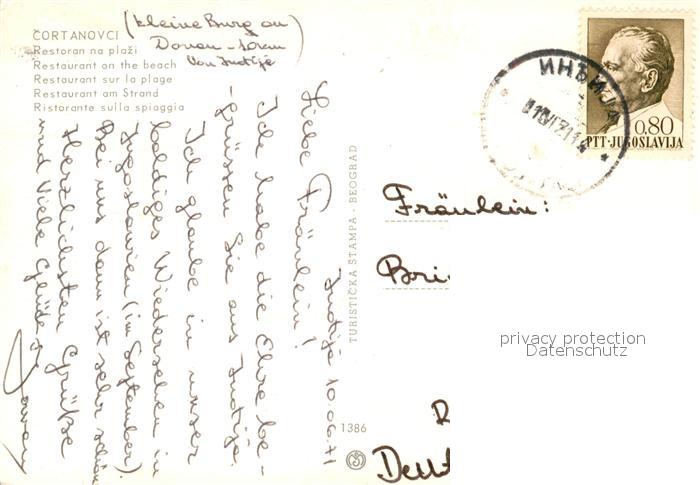 ČORTANOVCI
(kleine Burg an
Donau - 10 km
von Inđije)
Restoran na plaži
Restaurant on the beach
Restaurant sur la plage
Restaurant am Strand
Ristorante sulla spiaggia
Inđija 10.06.71
Liebe Fräulein!
Ich habe die Ehre be-
grüssen Sie aus Inđije.
Ich glaube in unser
baldiges Wiedersehen in
Jugoslawien (im September).
Bei uns dann ist sehr schön
Herzlichsten Grüße
und Viele
TURISTIČKA ŠTAMPA - BEOGRAD
1386
ИНЂИЈА
0,80
PTT-JUGOSLAVIJA
Fräulein:
Bri
privacy protection
Datenschutz